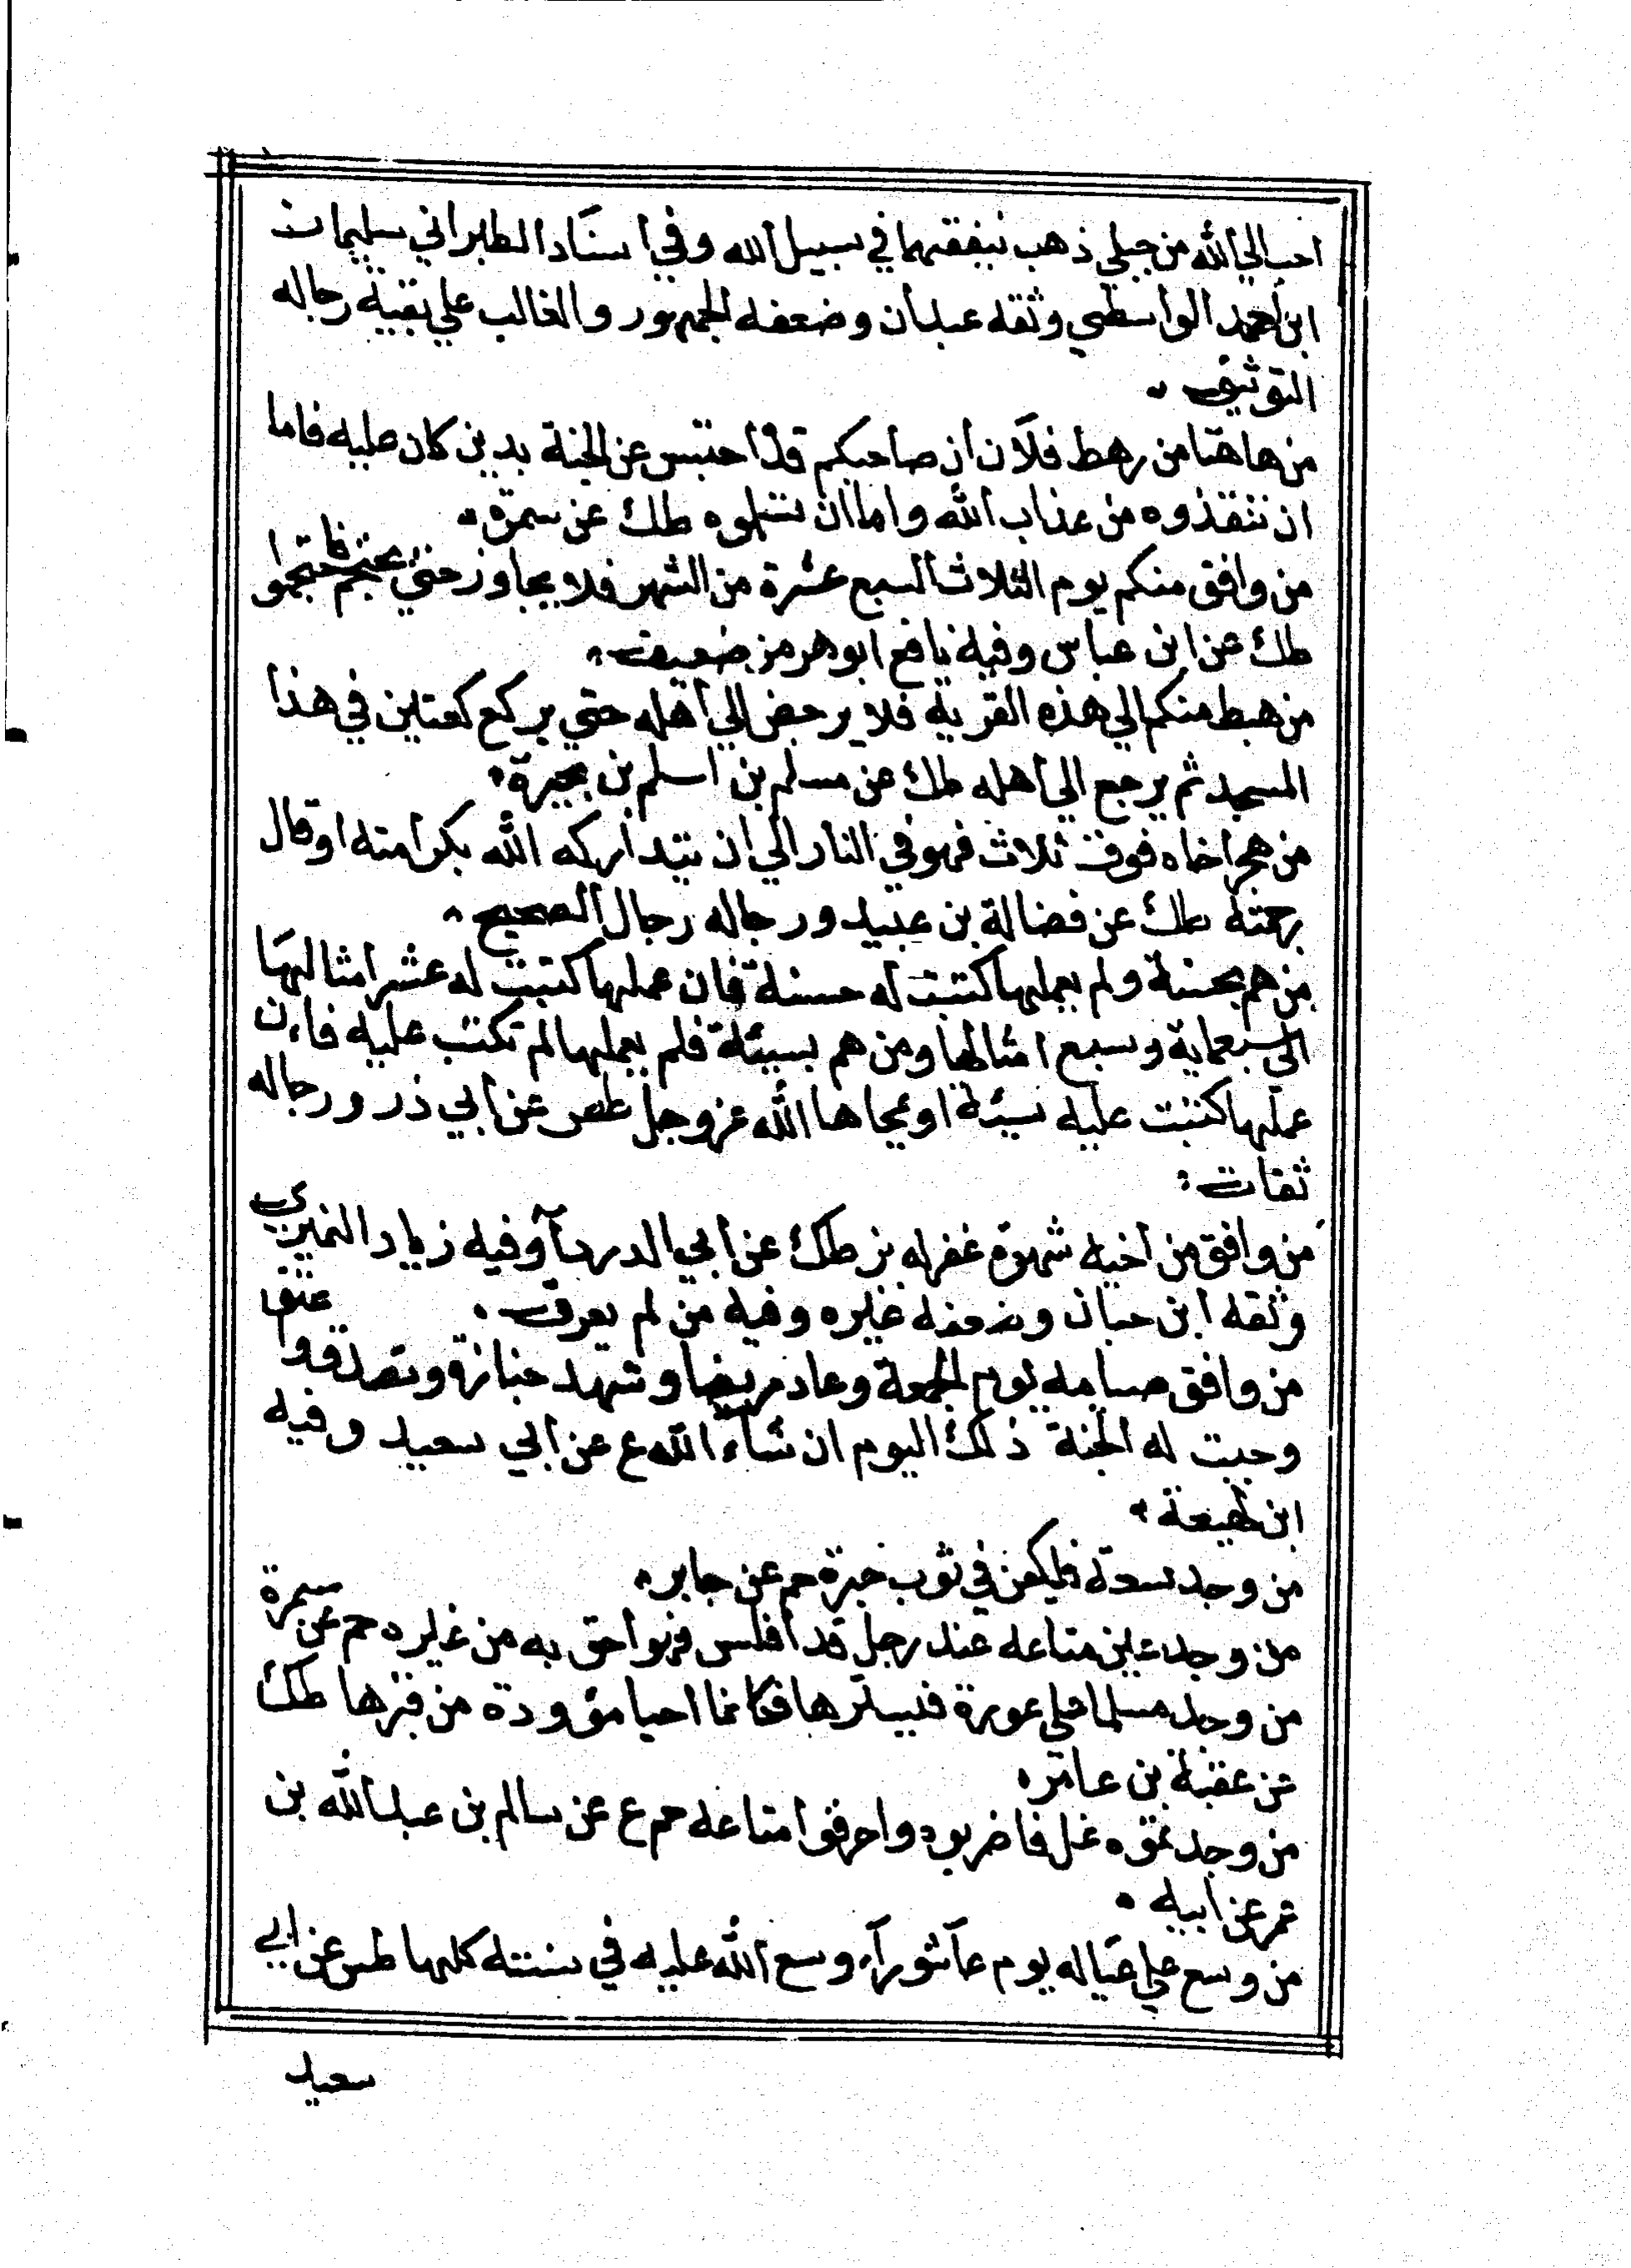 احب الي الله من جبلي ذهب ننفقهما في سبيل الله وفي اسناد الطبراني سليمان
ابن احمد الواسطي وثقه عبدان وضعفه الجمهور والغالب علي بقية رجاله
التوثيق
من هاهنا من رهط فلان ان صاحبكم قد احتبس عن الجنة بدين كان عليه فاما
ان تنقذوه من عذاب الله واما ان تسلموه طك عن سمرة
من وافق منكم يوم الثلاثا لسبع عشرة من الشهر فلا يجاوز حتي يحتجم فاحتجموا
طك عن ابن عباس وفيه نافع ابو هرمز ضعيف
من هبط منكم الي هذه القرية فلا يرجعن الي اهله حتي يركع ركعتين في هذا
المسجد ثم يرجع الي اهله طك عن مسلم بن اسلم بن بجرة
من هجر اخاه فوق ثلاث فهو في النار الي ان يتداركه الله بكرامته او قال
برحمته طك عن فضالة بن عبيد ورجاله رجال الصحيح
من هم بحسنة ولم يعملها كتبت له حسنة فان عملها كتبت له عشر امثالها
الي سبعماية وسبع امثالها ومن هم بسيئة فلم يعملها لم تكتب عليه فان
عملها كتبت عليه سيئة او يمحاها الله عز وجل طص عن ابي ذر ورجاله
ثقات
من وافق من اخيه شهوة غفر له بز طك عن ابي الدردآ وفيه زياد النميري
وثقه ابن حبان وضعفه غيره وفيه من لم يعرف
من وافق صيامه يوم الجمعة وعاد مريضا وشهد جنازة وتصدق واعتق
وجبت له الجنة ذلك اليوم ان شآء الله ع عن ابي سعيد وفيه
ابن لهيعة
من وجد سعة فليكفن في ثوب حبرة حم عن جابر
من وجد عين متاعه عند رجل قد افلس فهو احق به من غيره حم عن سمرة
من وجد مسلما علي عورة فسترها فكانما احيا مؤودة من قبرها طك
عن عقبة بن عامر
من وجدتموه غل فاضربوه واحرقوا متاعه حم ع عن سالم بن عبد الله بن
عمر عن ابيه
من وسع علي عياله يوم عآشورآء وسع الله عليه في سنته كلها طس عن ابي
سعيد